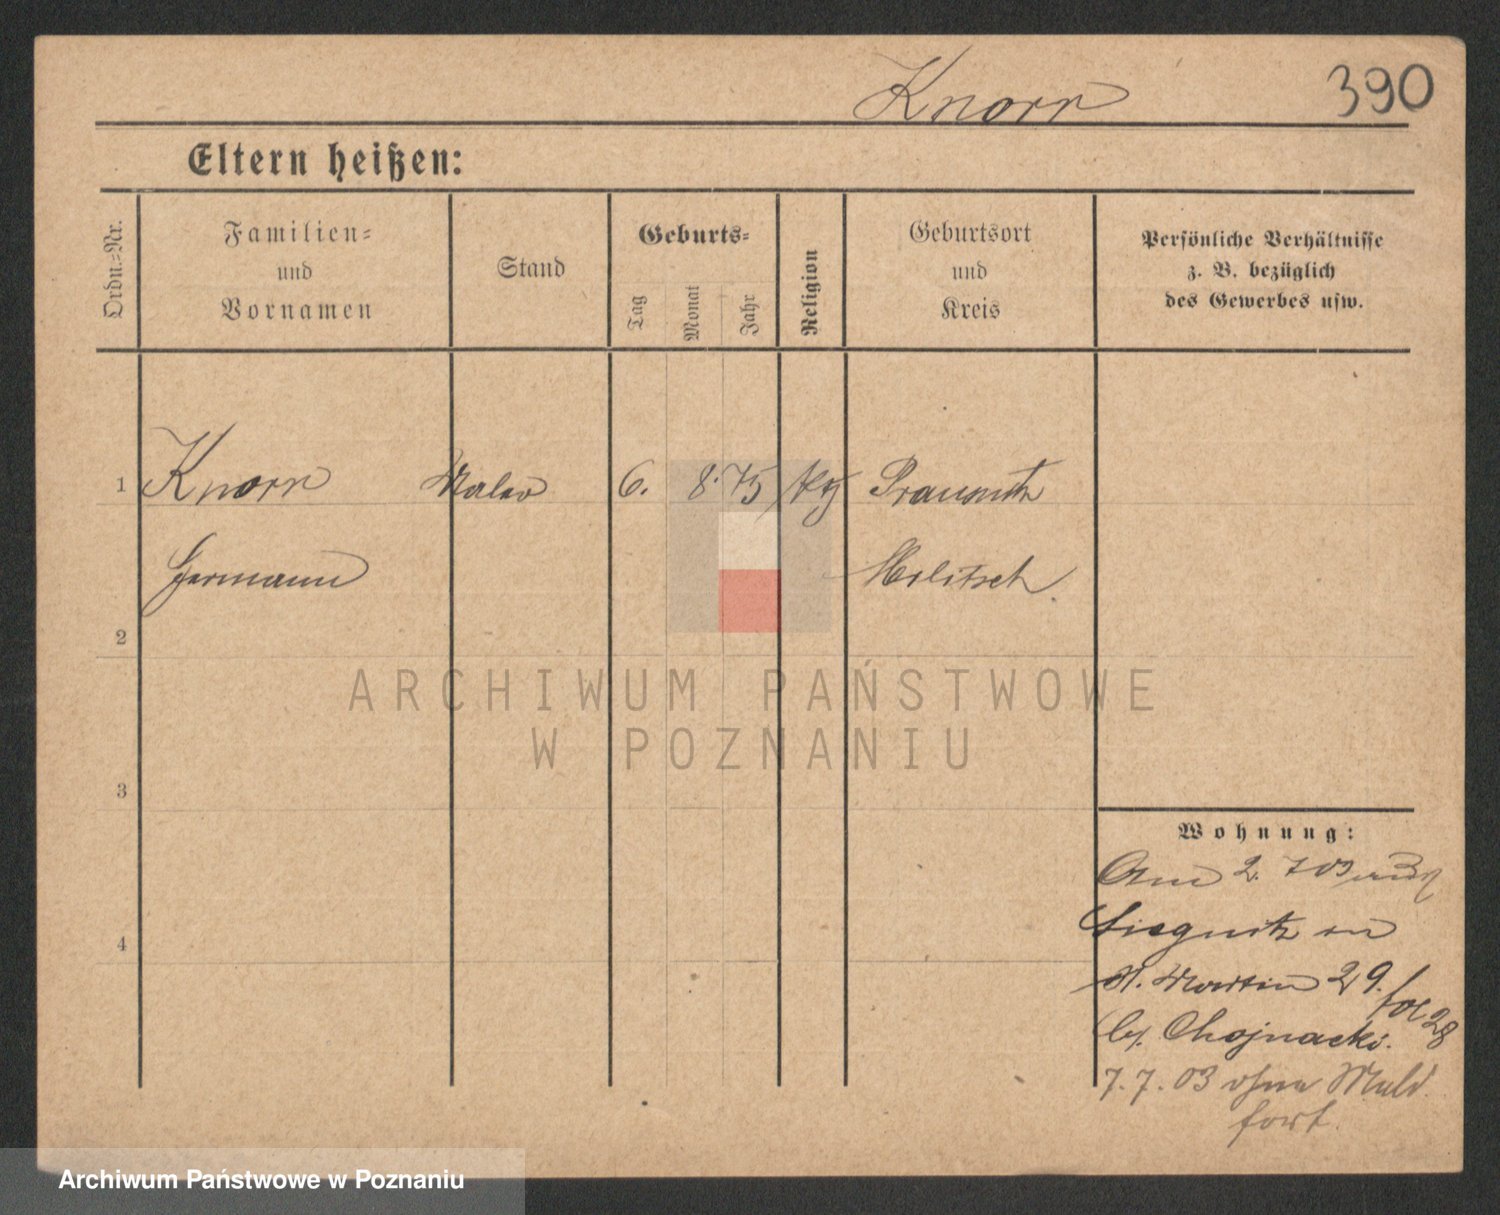 Knorr 390
Eltern heißen:
Ordn.-Nr.
Familien-
und
Vornamen
Stand
Geburts-
Tag
Monat
Jahr
Religion
Geburtsort
und
Kreis
Persönliche Verhältnisse
z. B. bezüglich
des Gewerbes usw.
1 Knorr Maler 6. 8. 75 Prausnitz
Hermann Militsch.
2
3
4
Wohnung:
Am 2. 7 03 aus
Liegnitz in
St. Martin 29.
b/. Chojnacki.
7. 7. 03 ohne Meld.
fort.
ARCHIWUM PAŃSTWOWE
W POZNANIU
Archiwum Państwowe w Poznaniu